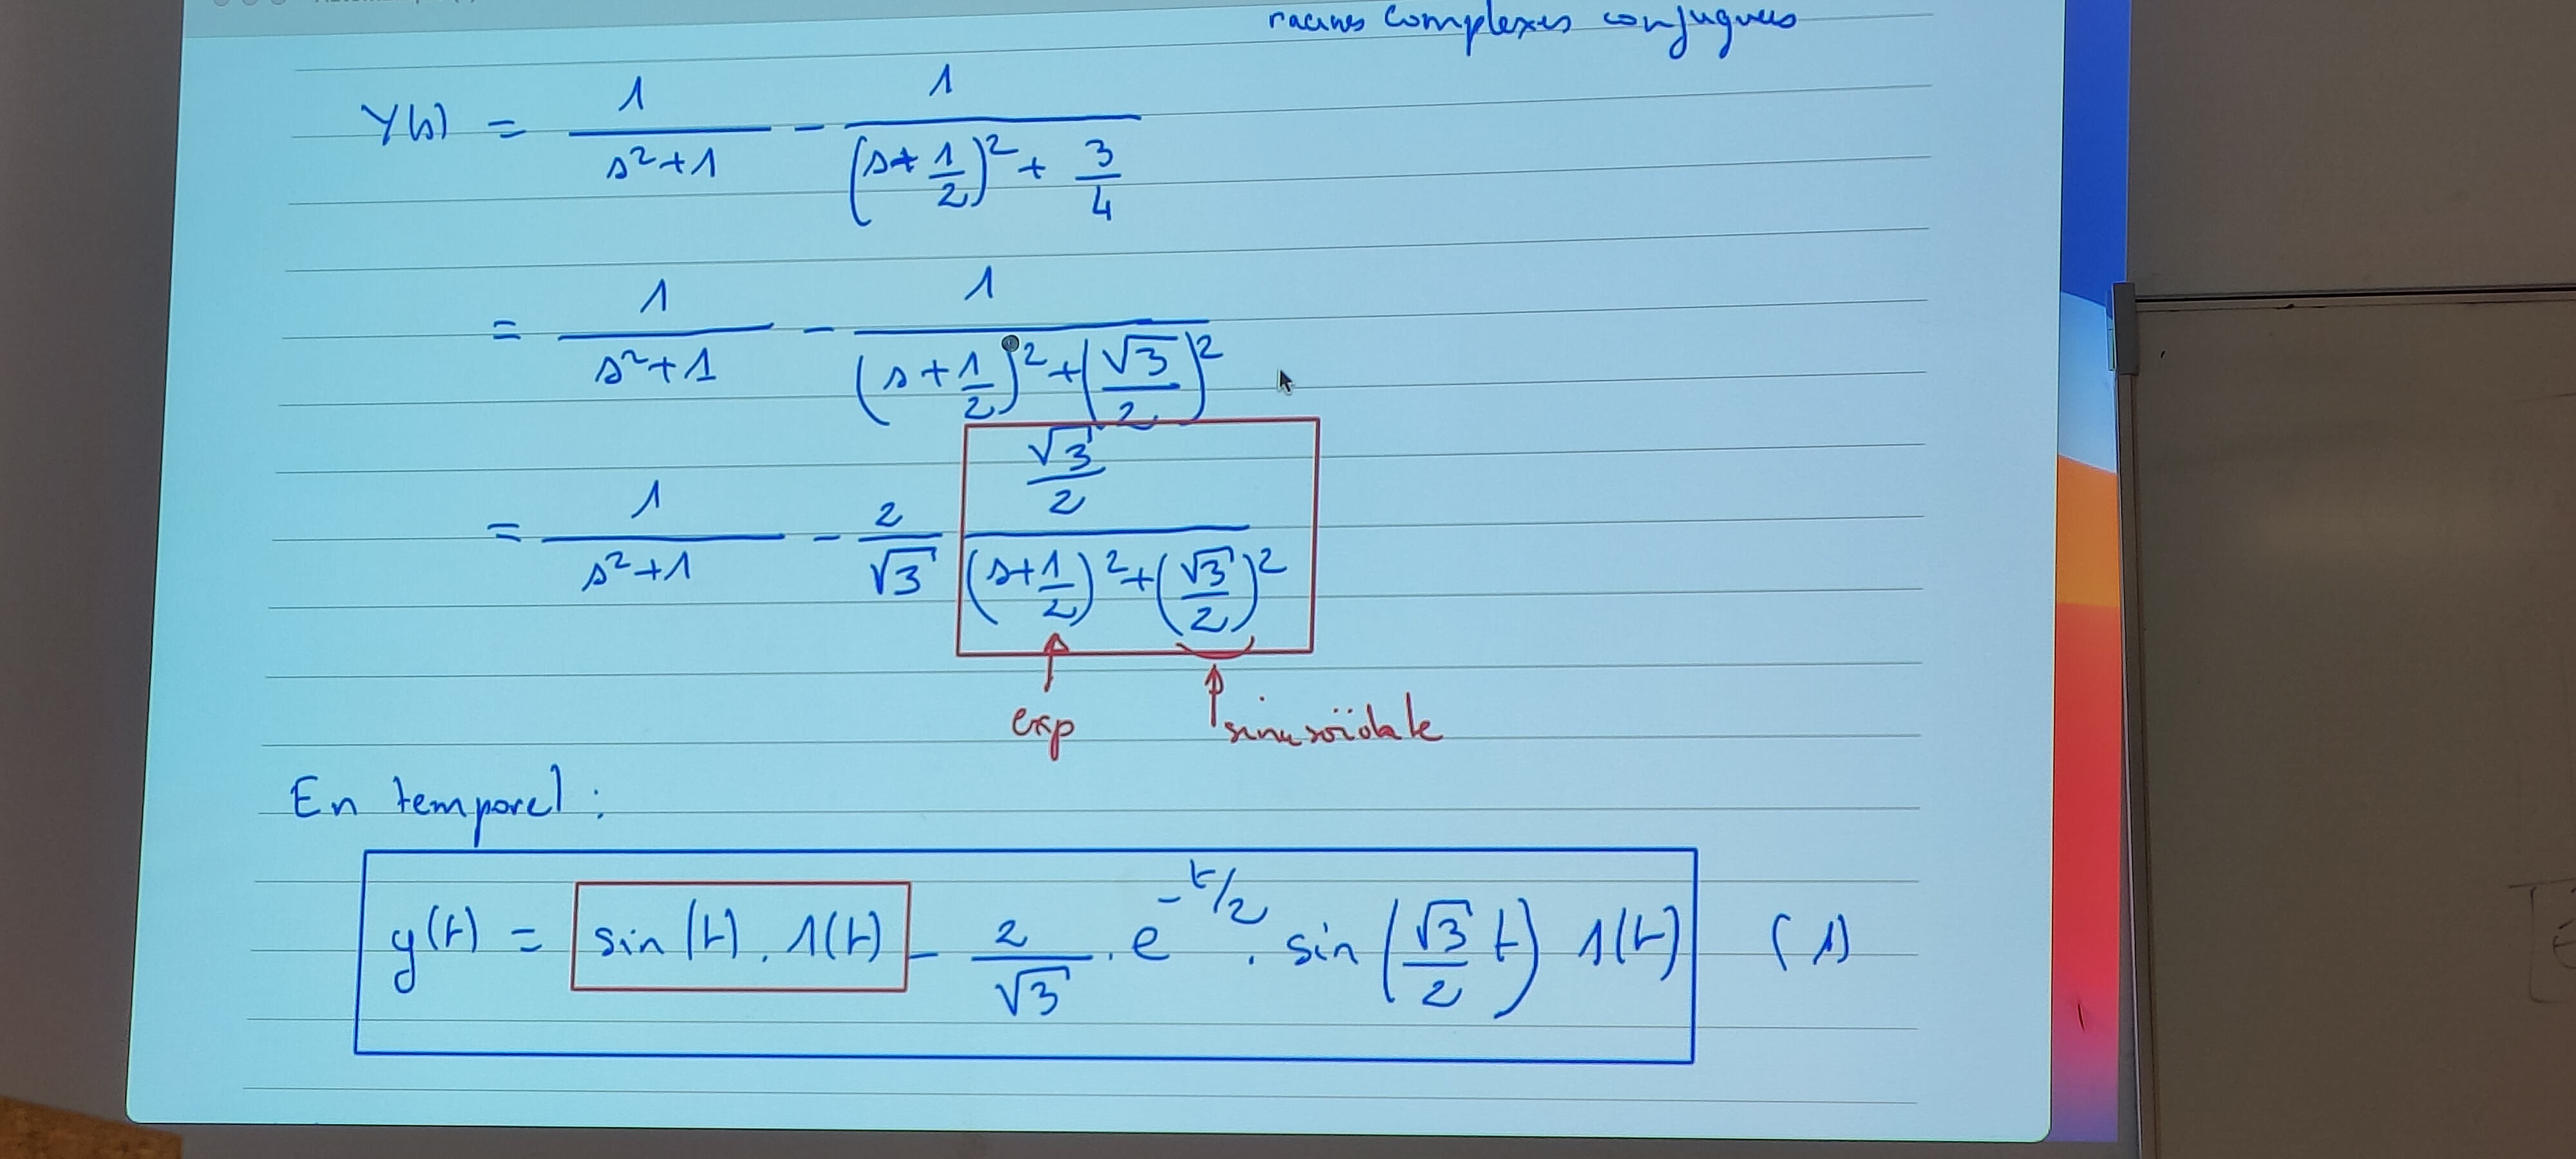 racines complexes conjuguées
Y(s) = 1/(s²+1) - 1/((s+1/2)² + 3/4)
= 1/(s²+1) - 1/((s+1/2)²+(√3/2)²)
= 1/(s²+1) - 2/√3 (√3/2)/((s+1/2)²+(√3/2)²)
exp sinusoïdale
En temporel :
y(t) = sin(t). 1(t) - 2/√3 . e^(-t/2) . sin(√3/2 t) 1(t) (1)